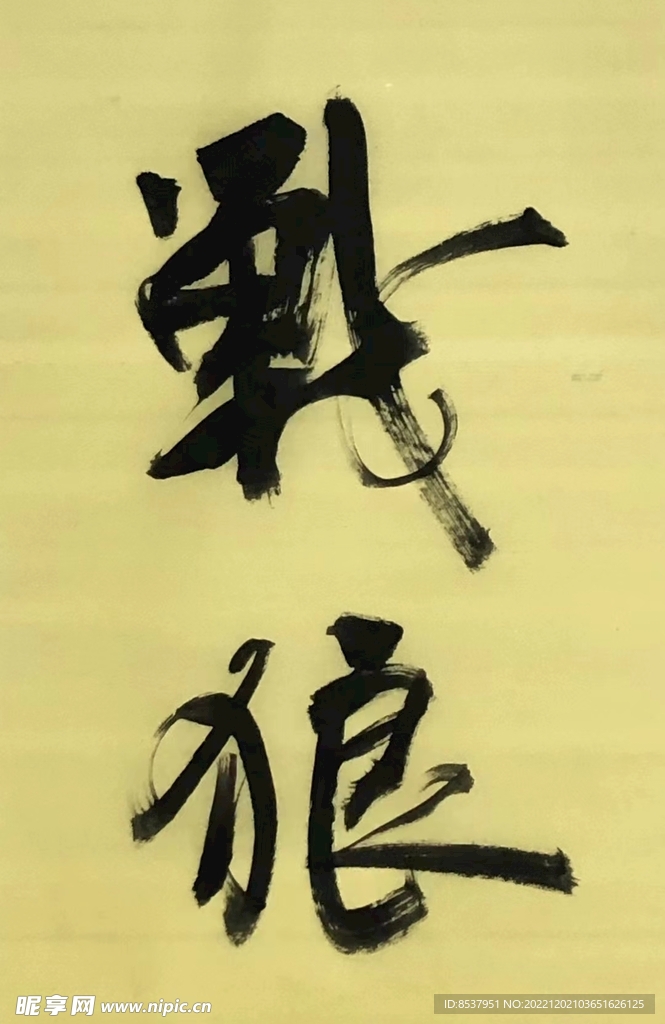 戰
狼
昵享网 www.nipic.cn
ID:8537951 NO:20221202103651626125